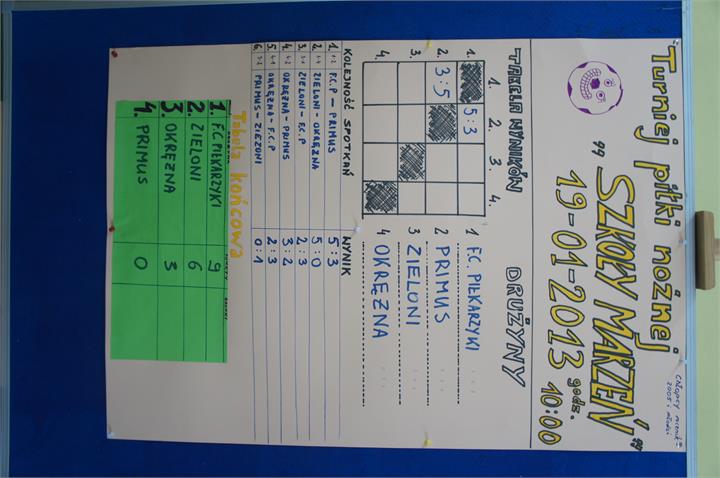 "Turniej piłki nożnej
"SZKOŁY MARZEŃ"
19-01-2013 godz. 10:00
CHŁOPCY
2003 i młodsi
TABELA WYNIKÓW
DRUŻYNY
1. 2. 3. 4.
1. 5:3
2. 3:5
3.
4.
1 F.C. PIŁKARZYKI
2 PRIMUS
3 ZIELONI
4 OKRĘŻNA
KOLEJNOŚĆ SPOTKAŃ WYNIK
1. 1-2 F.C.P – PRIMUS 5:3
2. ZIELONI - OKRĘŻNA 5:0
3. ZIELONI - F.C.P 2:3
4. OKRĘŻNA - PRIMUS 3:2
5. OKRĘŻNA - F.C.P 2:3
6. PRIMUS - ZIELONI 0:1
Tabela końcowa
1. FC PIŁKARZYKI 9
2. ZIELONI 6
3. OKRĘŻNA 3
4. PRIMUS 0